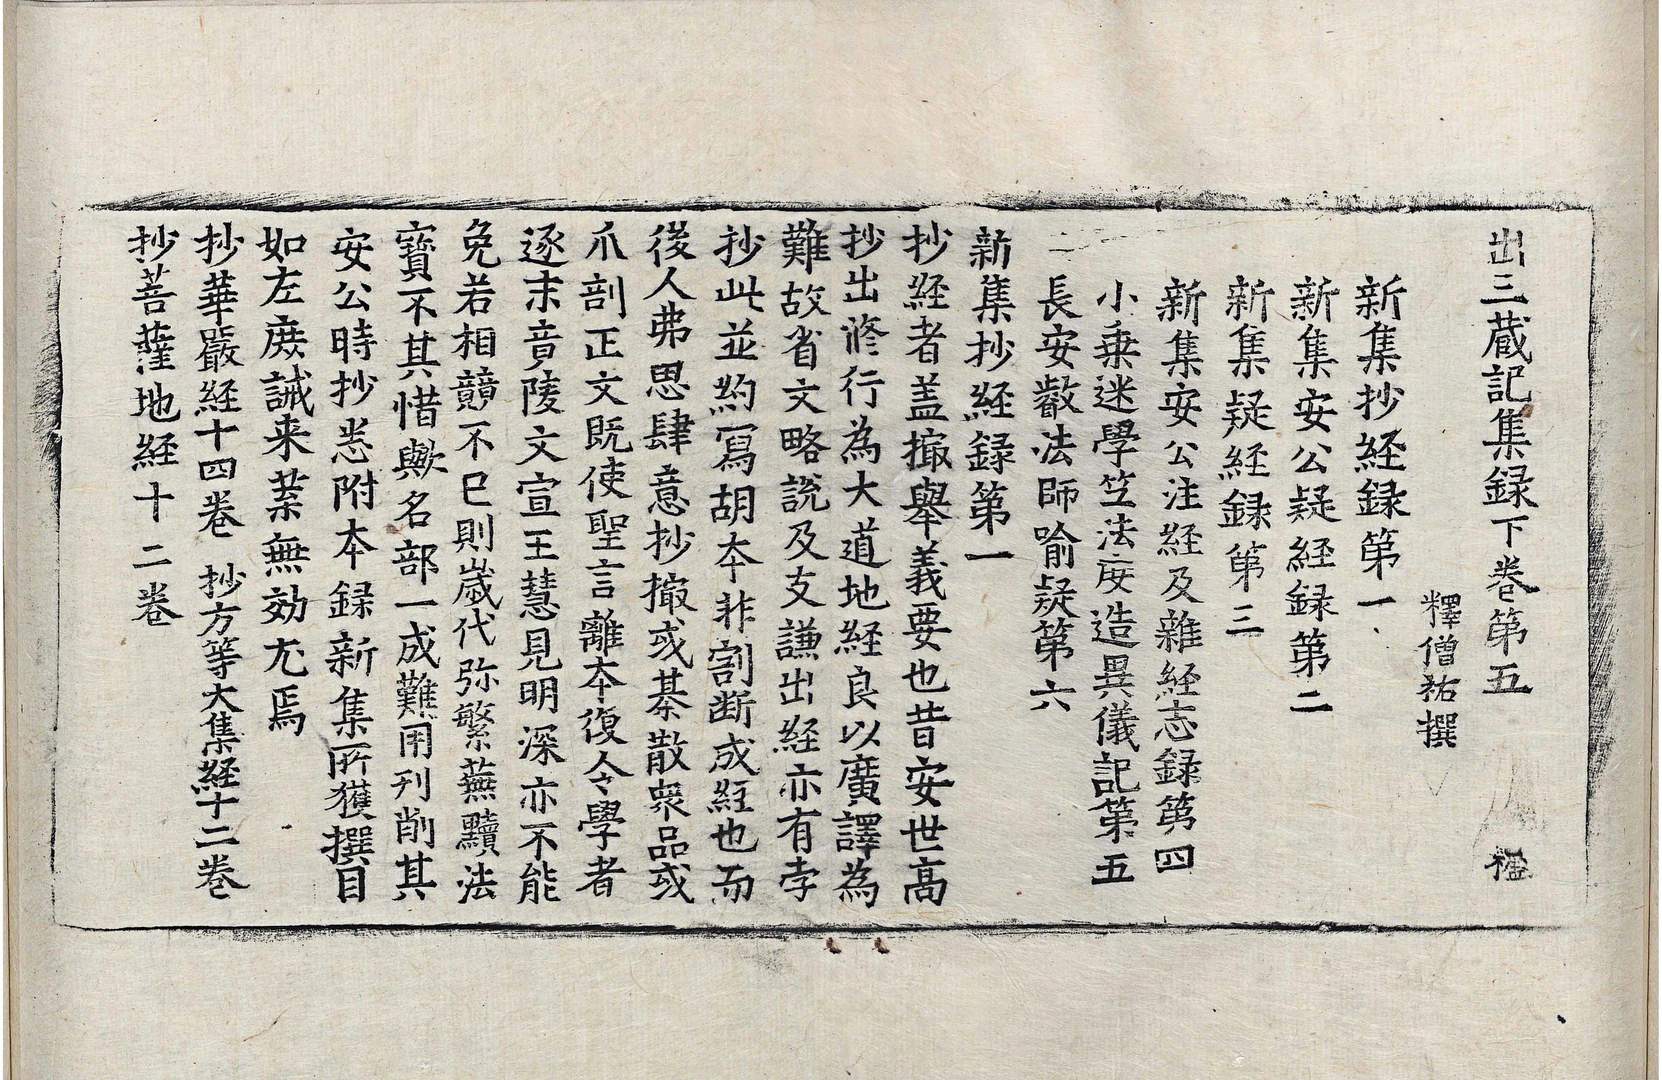 出三蔵記集録下卷第五 楹
釋僧祐撰
新集抄経録第一
新集安公疑経録第二
新集疑経録第三
新集安公注経及雜経志録第四
小乗迷學竺法度造異儀記第五
長安叡法師喻疑第六
新集抄経録第一
抄経者盖撮舉義要也昔安世高
抄出修行為大道地経良以廣譯為
難故省文略說及支謙出経亦有孛
抄此並約寫胡本非割断成経也而
後人弗思肆意抄撮或棊散衆品或
爪剖正文既使聖言離本復令學者
逐末竟陵文宣王慧見明深亦不能
免若相競不已則歲代弥繁蕪黷法
寳不其惜歟名部一成難用刋削其
安公時抄悉附本録新集所獲撰目
如左庻誡来葉無効尤焉
抄華嚴経十四卷 抄方等大集経十二卷
抄菩薩地経十二卷